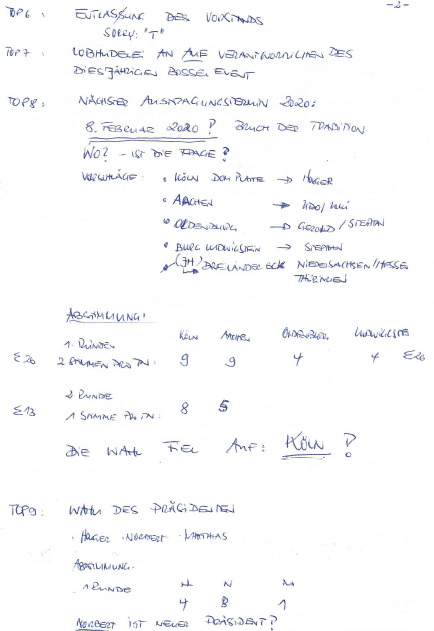 -2-
TOP6: ENTLASSUNG DES VORSTANDS
SORRY: "T"
TOP7: LOBHUDELEI AN AUF VERANTWORTLICHEN DES
DIESJÄHRIGEN BOSSEL EVENT
TOP8: NÄCHSTER AUSTRAGUNGSTERMIN 2020:
8. FEBRUAR 2020? BRUCH DER TRADITION
WO? - IST DIE FRAGE?
VORSCHLÄGE: • KÖLN DOMPLATTE → HOLGER
• AACHEN → /
• OLDENBURG → GEROLD / STEPHAN
• BURG LUDWIGSTEIN → STEPHAN
• (JH) DREILÄNDERECK NIEDERSACHSEN/HESSEN
THÜRINGEN
ABSTIMMUNG:
1. RUNDE: KÖLN AACHEN OLDENBURG LUDWIGSTE
Σ26 2 STIMMEN PRO TN: 9 9 4 4 Σ26
2 RUNDE
Σ13 1 STIMME PRO TN: 8 5
DIE WAHL FIEL AUF: KÖLN!
TOP9: WAHL DES PRÄSIDENTEN
• HOLGER • NORBERT • MATTHIAS
ABSTIMMUNG:
1 RUNDE H N M
4 8 1
NORBERT IST NEUER PRÄSIDENT!